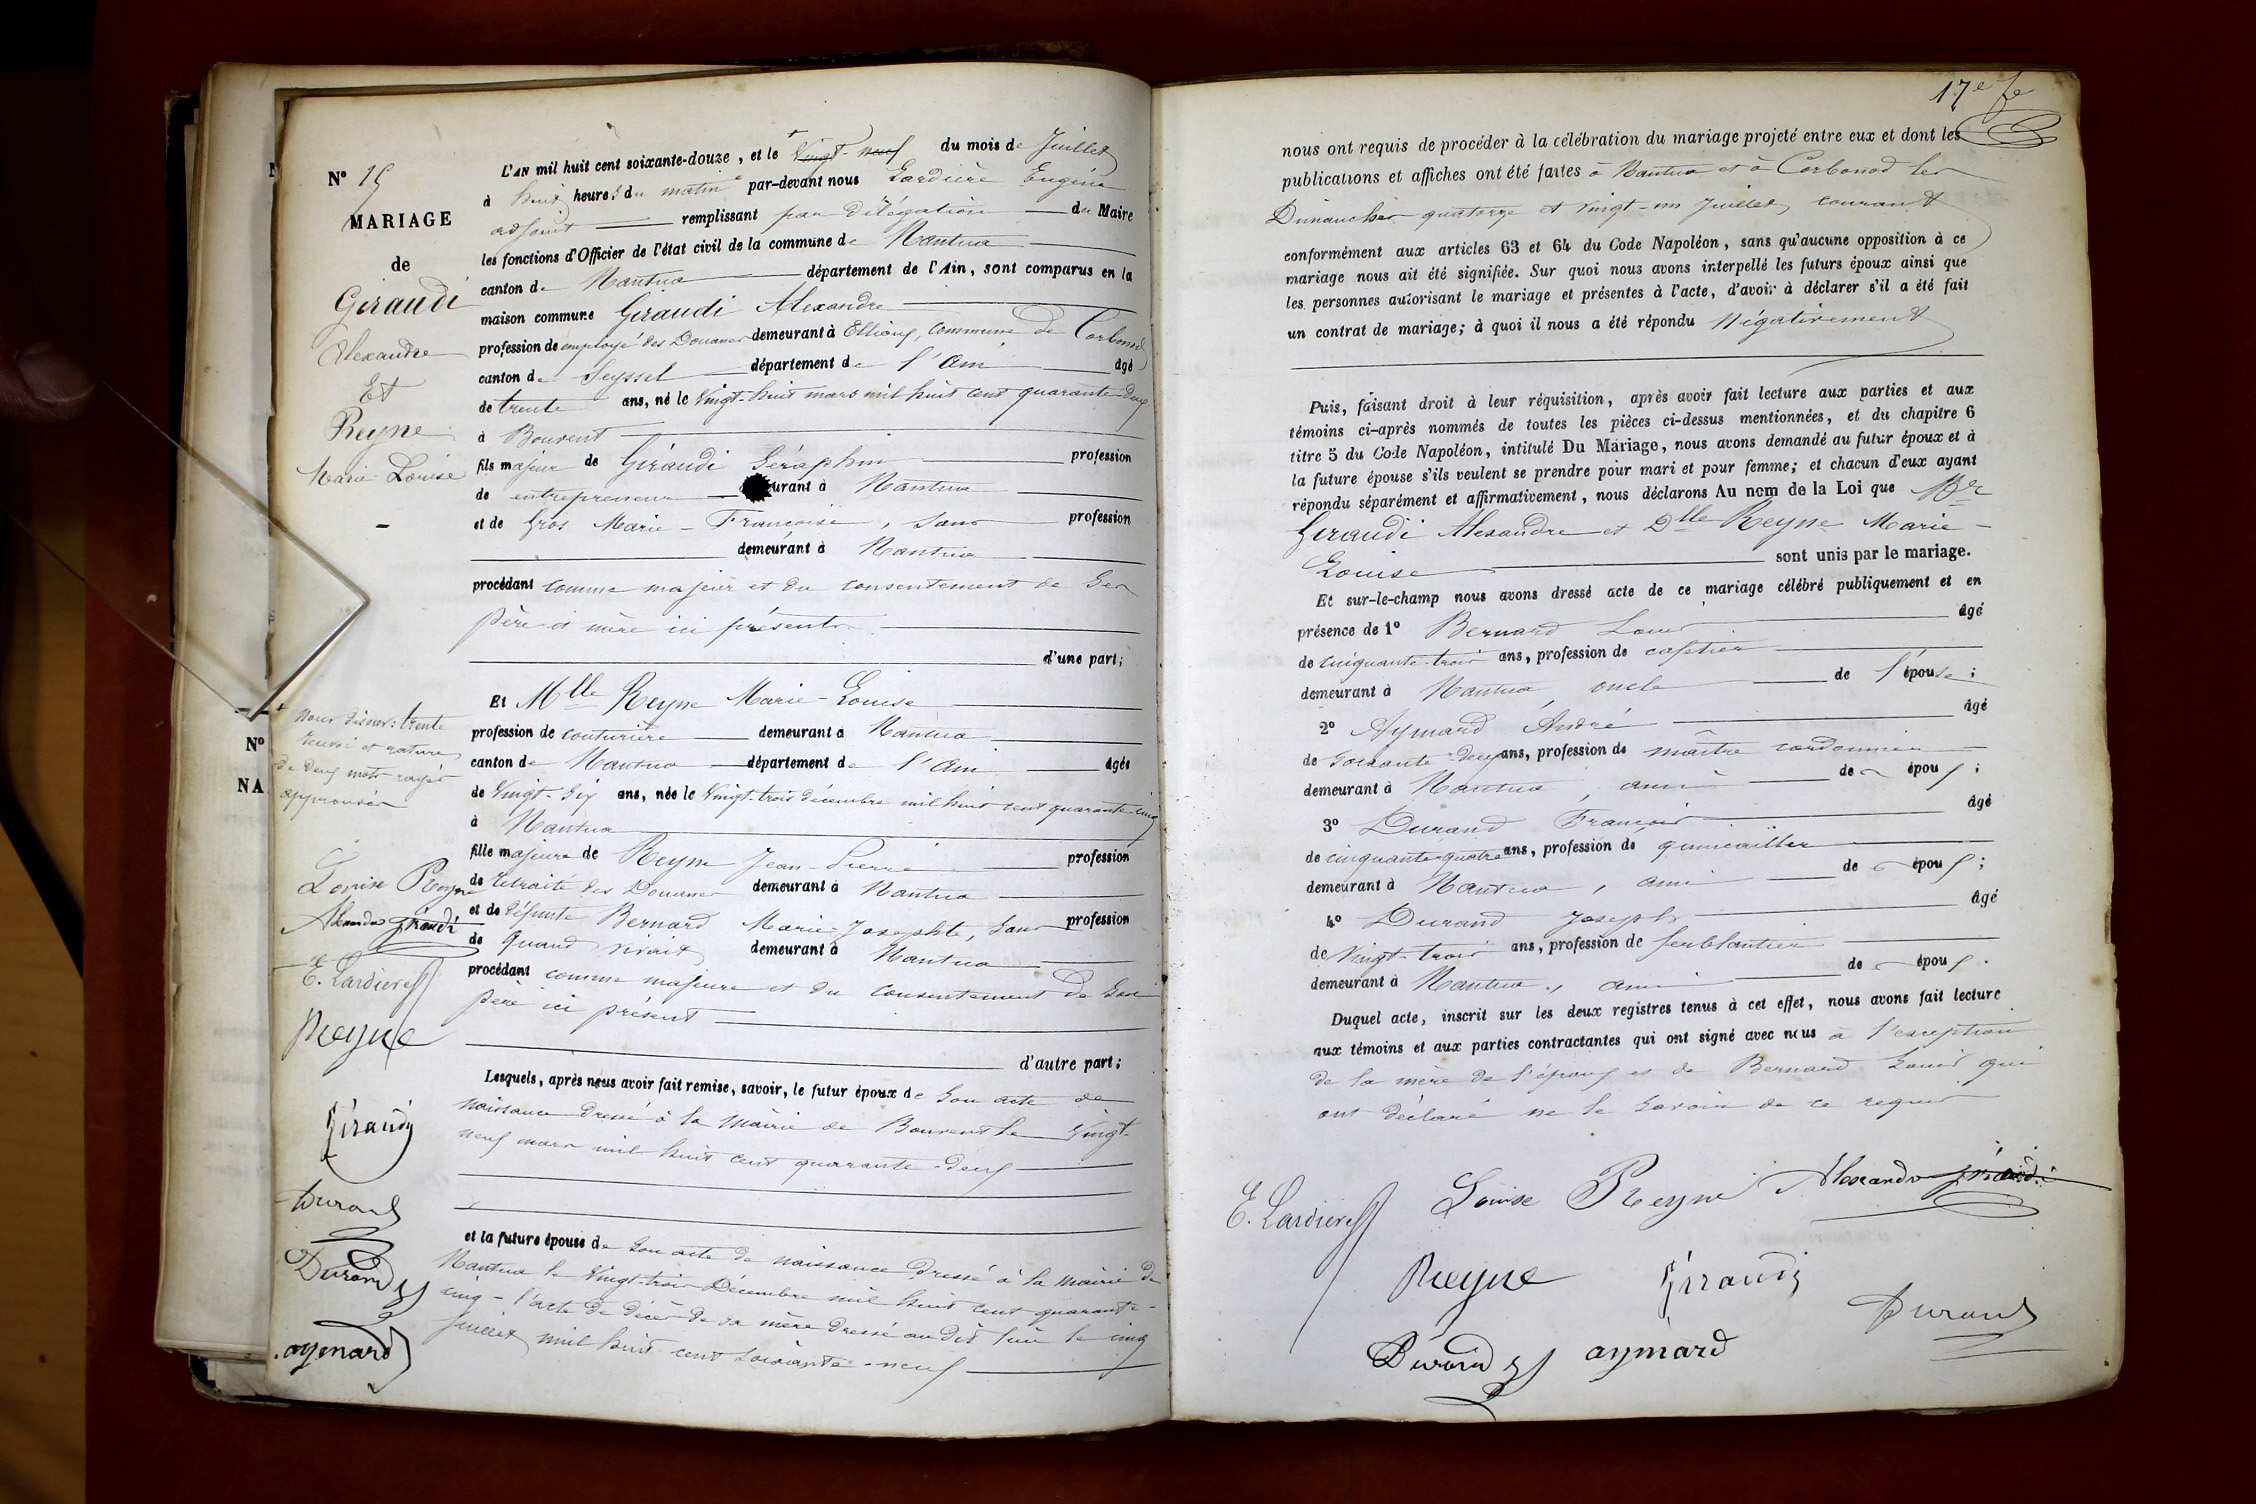 N° 15
MARIAGE
de
Giraudi
Alexandre
Et
Reyne
Marie-Louise
L'AN mil huit cent soixante-douze, et le + Vingt-neuf du mois de Juillet
à huit heures du matin par-devant nous Lardière Eugène
adjoint remplissant par délégation du Maire
les fonctions d'Officier de l'état civil de la commune de Nantua
canton de Nantua département de l'Ain, sont comparus en la
maison commune Giraudi Alexandre
profession de employé des Douanes demeurant à Ellioug, commune de Corbonod
canton de Seyssel département de l'Ain âgé
de trente ans, né le Vingt-huit mars mil huit cent quarante-deux
à Bouvent
fils majeur de Giraudi Séraphin profession
de entrepreneur urant à Nantua
et de Gros Marie-Françoise, sans profession
demeurant à Nantua
procédant comme majeur et du consentement de ses
père et mère ici présents
d'une part;
Et Mlle Reyne Marie-Louise
profession de couturière demeurant à Nantua
canton de Nantua département de l'Ain âgée
de Vingt-six ans, née le Vingt-trois décembre mil huit cent quarante-cinq
à Nantua
fille majeure de Reyne Jean-Pierre profession
de retraité des Douanes demeurant à Nantua
et de défunte Bernard Marie-Josephte, sans profession
de quand vivait demeurant à Nantua
procédant comme majeure et du consentement de son
père ici présent
d'autre part;
Lesquels, après nous avoir fait remise, savoir, le futur époux de son acte de
naissance dressé à la Mairie de Bouvent le Vingt-
neuf mars mil huit cent quarante-deux
et la future épouse de son acte de naissance dressé à la mairie de
Nantua le Vingt-trois Décembre mil huit cent quarante-
cinq - l'acte de décès de sa mère dressé au dit lieu le cinq
juillet mil huit cent soixante-neuf
+ nous disons: trente
renvoi et rature
de deux mots rayés
approuvés
Louise Reyne
Alexandre Giraudi
E. Lardière
Reyne
Giraudi
Durand
Durand
aymard
N°
NA
17e fe
nous ont requis de procéder à la célébration du mariage projeté entre eux et dont les
publications et affiches ont été faites à Nantua et à Corbonod les
Dimanches quatorze et vingt-un Juillet courant
conformément aux articles 63 et 64 du Code Napoléon, sans qu'aucune opposition à ce
mariage nous ait été signifiée. Sur quoi nous avons interpellé les futurs époux ainsi que
les personnes autorisant le mariage et présentes à l'acte, d'avoir à déclarer s'il a été fait
un contrat de mariage; à quoi il nous a été répondu Négativement
Puis, faisant droit à leur réquisition, après avoir fait lecture aux parties et aux
témoins ci-après nommés de toutes les pièces ci-dessus mentionnées, et du chapitre 6
titre 5 du Code Napoléon, intitulé Du Mariage, nous avons demandé au futur époux et à
la future épouse s'ils veulent se prendre pour mari et pour femme; et chacun d'eux ayant
répondu séparément et affirmativement, nous déclarons Au nom de la Loi que Mr
Giraudi Alexandre et Dlle Reyne Marie-
Louise sont unis par le mariage.
Et sur-le-champ nous avons dressé acte de ce mariage célébré publiquement et en
présence de 1° Bernard Louis âgé
de cinquante-trois ans, profession de cafetier
demeurant à Nantua oncle de l'épouse;
2° Aymard André âgé
de soixante-deux ans, profession de maître cordonnier
demeurant à Nantua, ami des époux;
3° Durand François âgé
de cinquante-quatre ans, profession de quincailler
demeurant à Nantua, ami des époux;
4° Durand Joseph âgé
de Vingt-trois ans, profession de ferblantier
demeurant à Nantua, ami des époux.
Duquel acte, inscrit sur les deux registres tenus à cet effet, nous avons fait lecture
aux témoins et aux parties contractantes qui ont signé avec nous à l'exception
de la mère de l'époux et de Bernard Louis qui
ont déclaré ne le savoir de ce requis
E. Lardière Louise Reyne Alexandre Giraudi
Reyne Giraudi Durand
Durand aymard